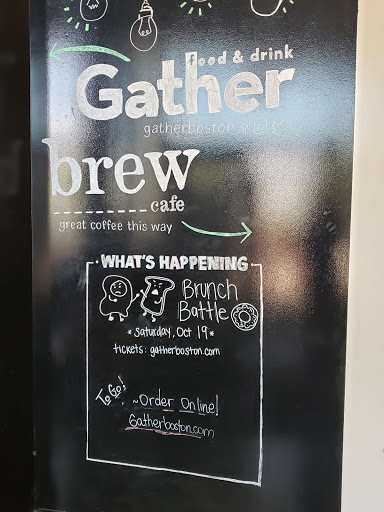 food & drink
Gather
brew
cafe
great coffee this way
WHAT'S HAPPENING
Brunch
Battle
* Saturday, Oct 19 *
tickets: gatherboston.com
To Go!
~Order Online!
Gatherboston.com